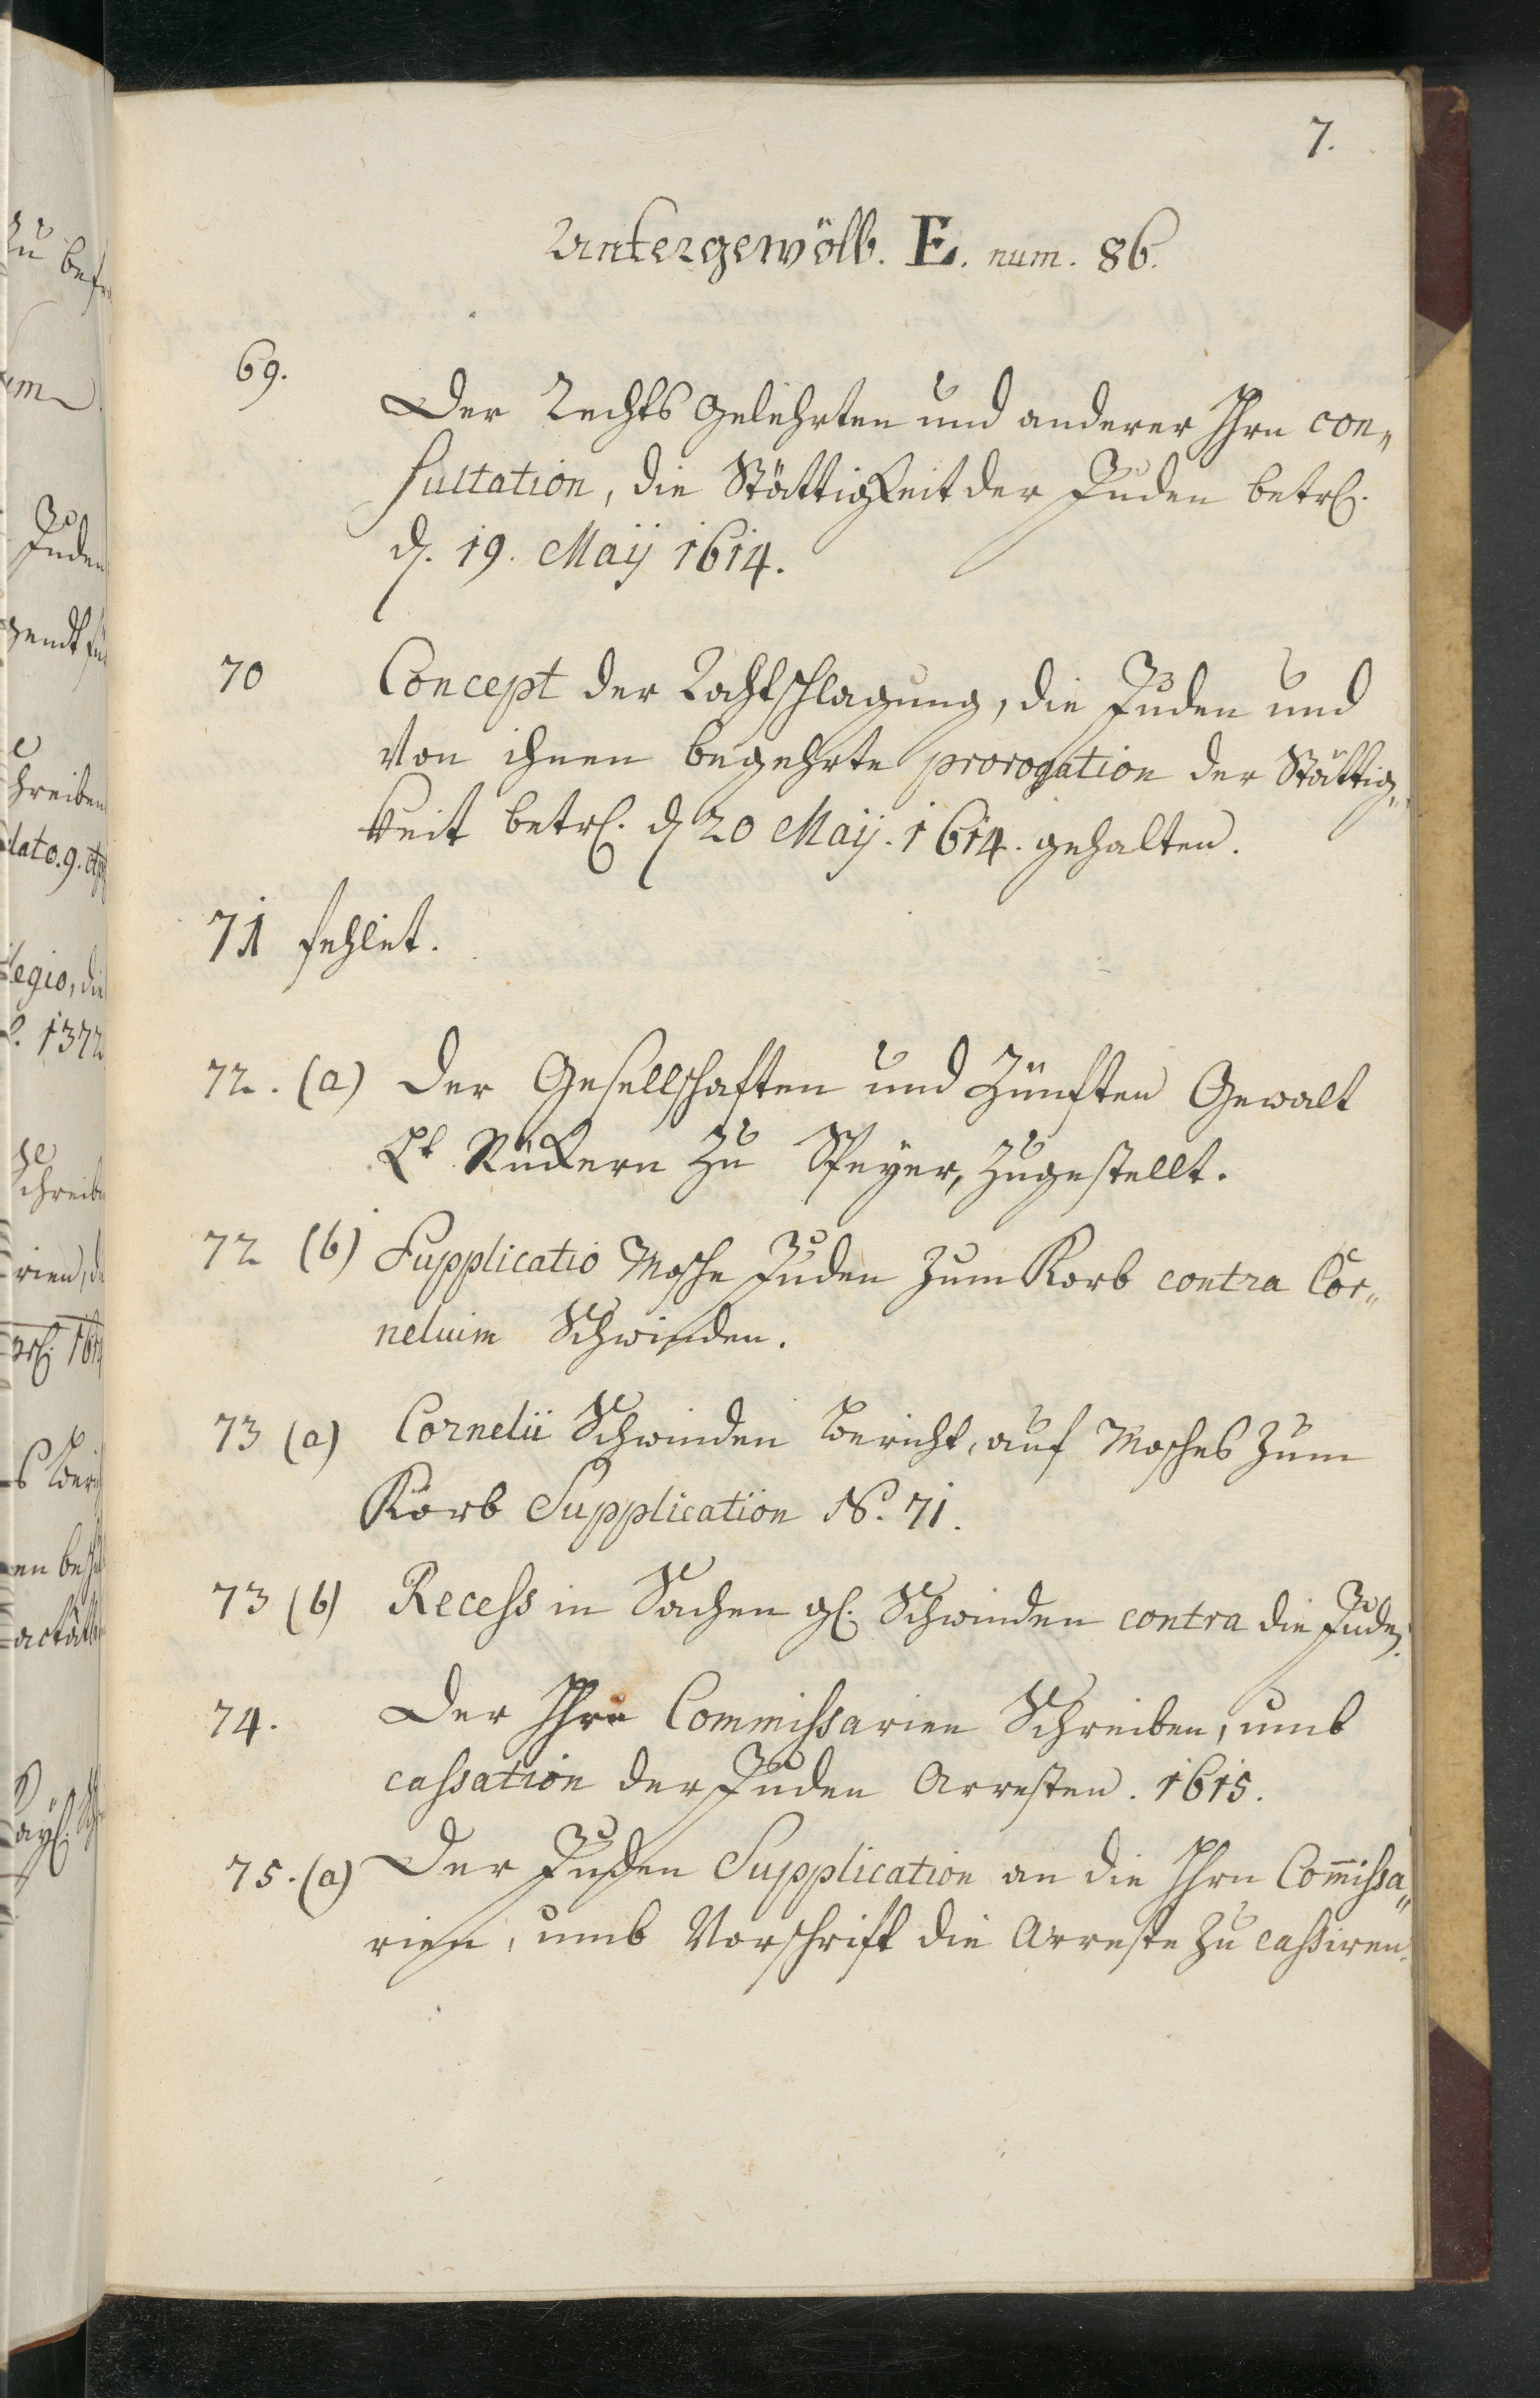 7.
Untergewölb. E. num. 86.
69.
Der Rechts Gelehrten und anderer Ihrn con„
sultation, die Stättigkeit der Juden betrl.
d. 19. Maij 1614.
70 Concept der Rathschlagung, die Juden und
von ihnen begehrte prorogation der Stättig„
keit betrl. d 20 Maij. 1614. gehalten.
71 fehlet.
72. (a) Der Gesellschaften und Zünften Gewalt
Lt Rückern zu Speyer, zugestellt.
72 (b) Supplicatio Mosche Juden zum Korb contra Cor„
neluim Schwinden.
73 (a) Cornelii Schwinden Bericht, auf Mosches zum
Korb Supplication No. 71.
73 (b) Recess in Sachen gl. Schwinden contra die Juden.
74. Der Ihrn Commissarien Schreiben, umb
cassation der Juden Arresten. 1615.
75. (a) Der Juden Supplication an die Ihrn Com̄issa„
rien, umb Vorschrift die Arreste zu cassiren.
zu
Juden
hreiben
dato. 9.
legio, die
1372
rien, d
actat